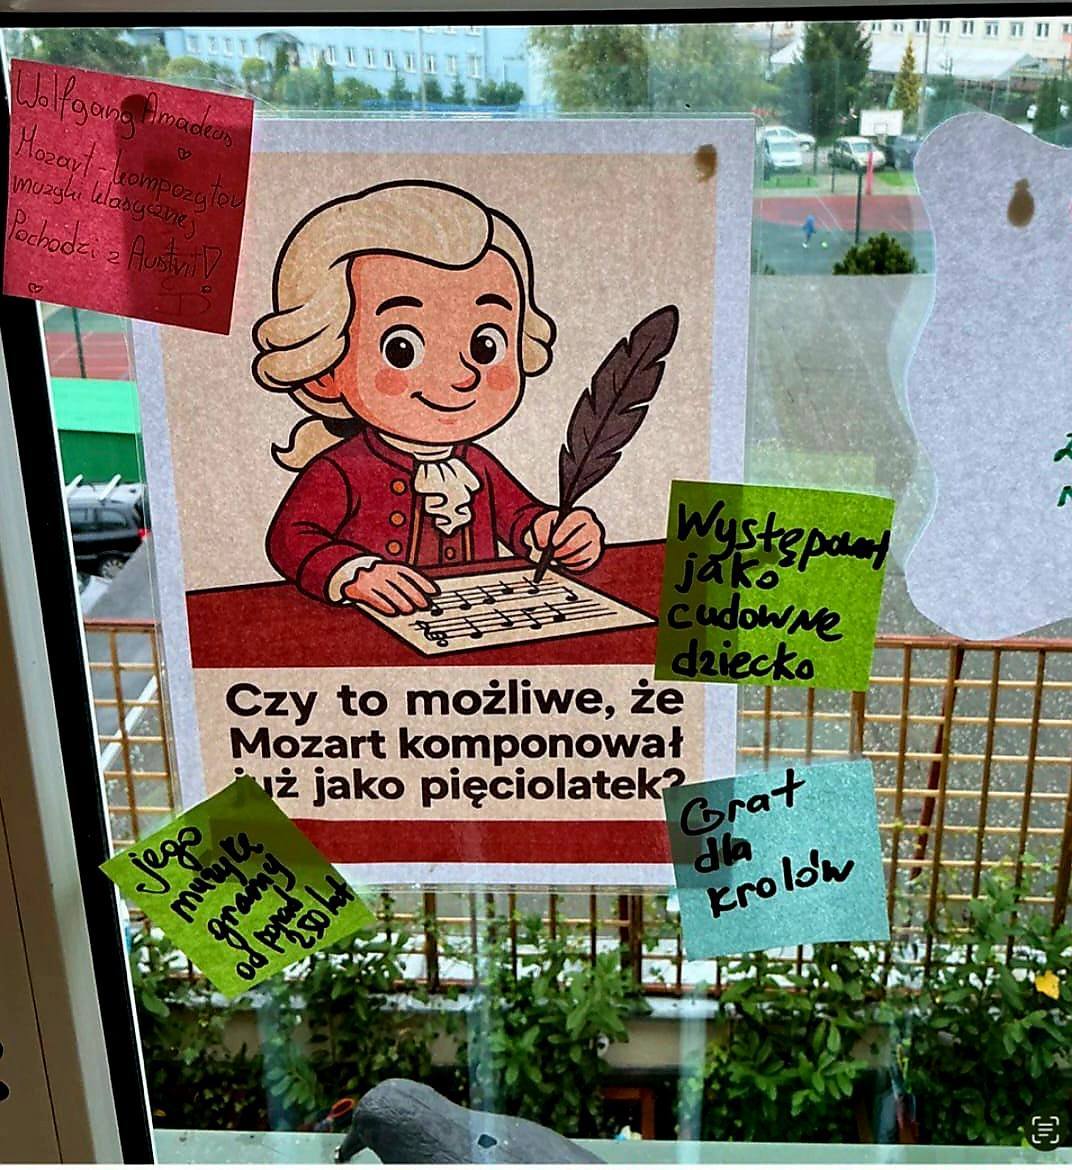 Wolfgang Amadeus
Mozart - kompozytor
muzyki klasycznej
Pochodzi z Austrii!
Występował
jako
cudowne
dziecko
Czy to możliwe, że
Mozart komponował
już jako pięciolatek?
Grał
dla
królów
jego
muzykę
gramy
od ponad
250 lat